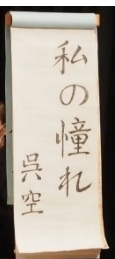 私の憧れ
呉空